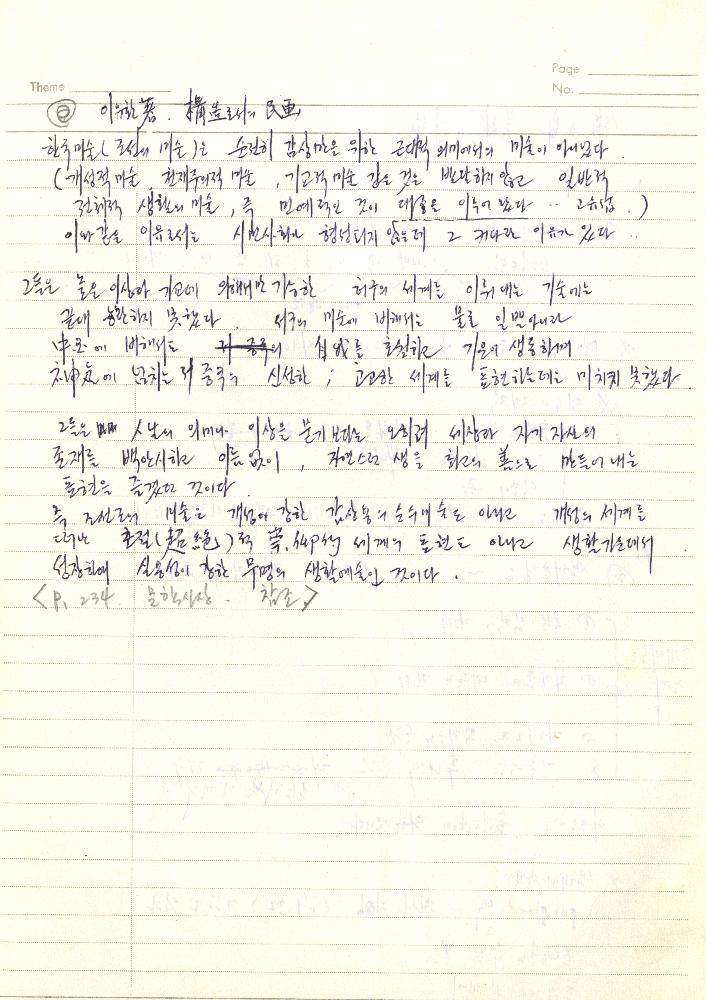 Page
Theme
No.
이우환 著. 構造로서의 民画
한국미술(조선의 미술)은 순전히 감상만을 위한 근대적 의미에서의 미술이 아니었다.
(개성적 미술, 천재주의적 미술, 기교적 미술 같은 것은 발달하지 않고 일반적
전체적 생활의 미술, 즉 민예적인 것이 대종을 이루어 왔다 ‥ 고유섭.)
이와 같은 이유로서는 시민사회가 형성되지 않은데 그 커다란 이유가 있다 ‥
그들은 높은 이상과 기교에 의해서만 가능한 허구의 세계를 이뤄내는 기술에는
끝내 능란하지 못했다. 서구의 미술에 비해서는 물론 일뿐아니라
中国에 비해서도 를 호설하고 기운이 생동하며
에 넘치는 저 중국의 신성한; 고고한 세계를 표현하는데는 미치지 못했다.
그들은 人生의 의미나 이상을 묻기 보다는 오히려 세상과 자기 자신의
존재를 백안시하고 이름없이, 자연스런 생을 최고의 善으로 만들어 내는
표현을 즐겼던 것이다.
즉 조선조의 미술은 개성이 강한 감상용의 순수예술도 아니고 개성의 세계를
떠난 초절(超絶)적 세계의 표현도 아니고 생활가운데서
성장하여 실용성이 강한 무명의 생활예술인 것이다.
<P. 234 문학사상. 참조>